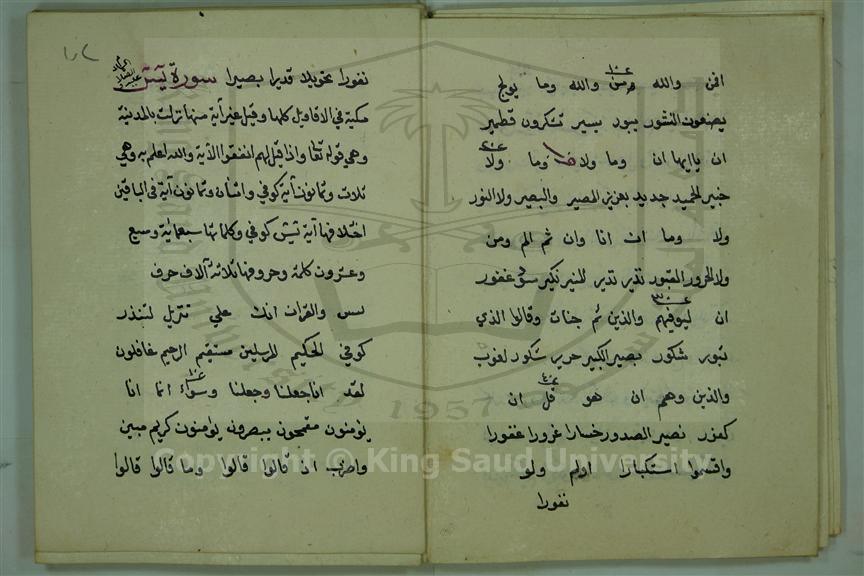 افمن والله ومن والله وما يولج
يصنعون النشور يبور يسير تشكرون قطمير
ان ياايها ان وما ولا وما ولا
خبير الحميد جديد بعزيز المصير والبصير ولا النور
ولا وما ان انا وان ثم الم ومن
ولا الحرور القبور نذير نذير المنير نكير سود غفور
ان ليوفيهم والذين ثم جنات وقالوا الذي
تبور شكور بصير الكبير حرير شكور لغوب
والذين وهم ان هو قل ان
كفور نصير الصدور خسارا غرورا غفورا
واقسموا استكبارا اولم ولو
نفورا
نفورا تحويلا قديرا بصيرا سورة يس
مكية في الاقاويل كلها وقيل غير أية منها نزلت بالمدينة
وهي قوله تعا واذا قيل لهم انفقوا الأية والله اعلم به وهي
ثلاث وثمانون أية كوفي واثنتان وثمانون أية في الباقين
اختلافها آية يس كوفي وكلماتها سبعماية وسبع
وعشرون كلمة وحروفها ثلاثة آلاف حرف
يس والقران انك علي تنزيل لتنذر
كوفي الحكيم المرسلين مستقيم الرحيم غافلون
لقد انا جعلنا وجعلنا وسواء انما انا
يؤمنون مقمحون يبصرون يؤمنون كريم مبين
واضرب اذ قالوا قالوا وما قالوا قالوا
Copyright © King Saud University
1957